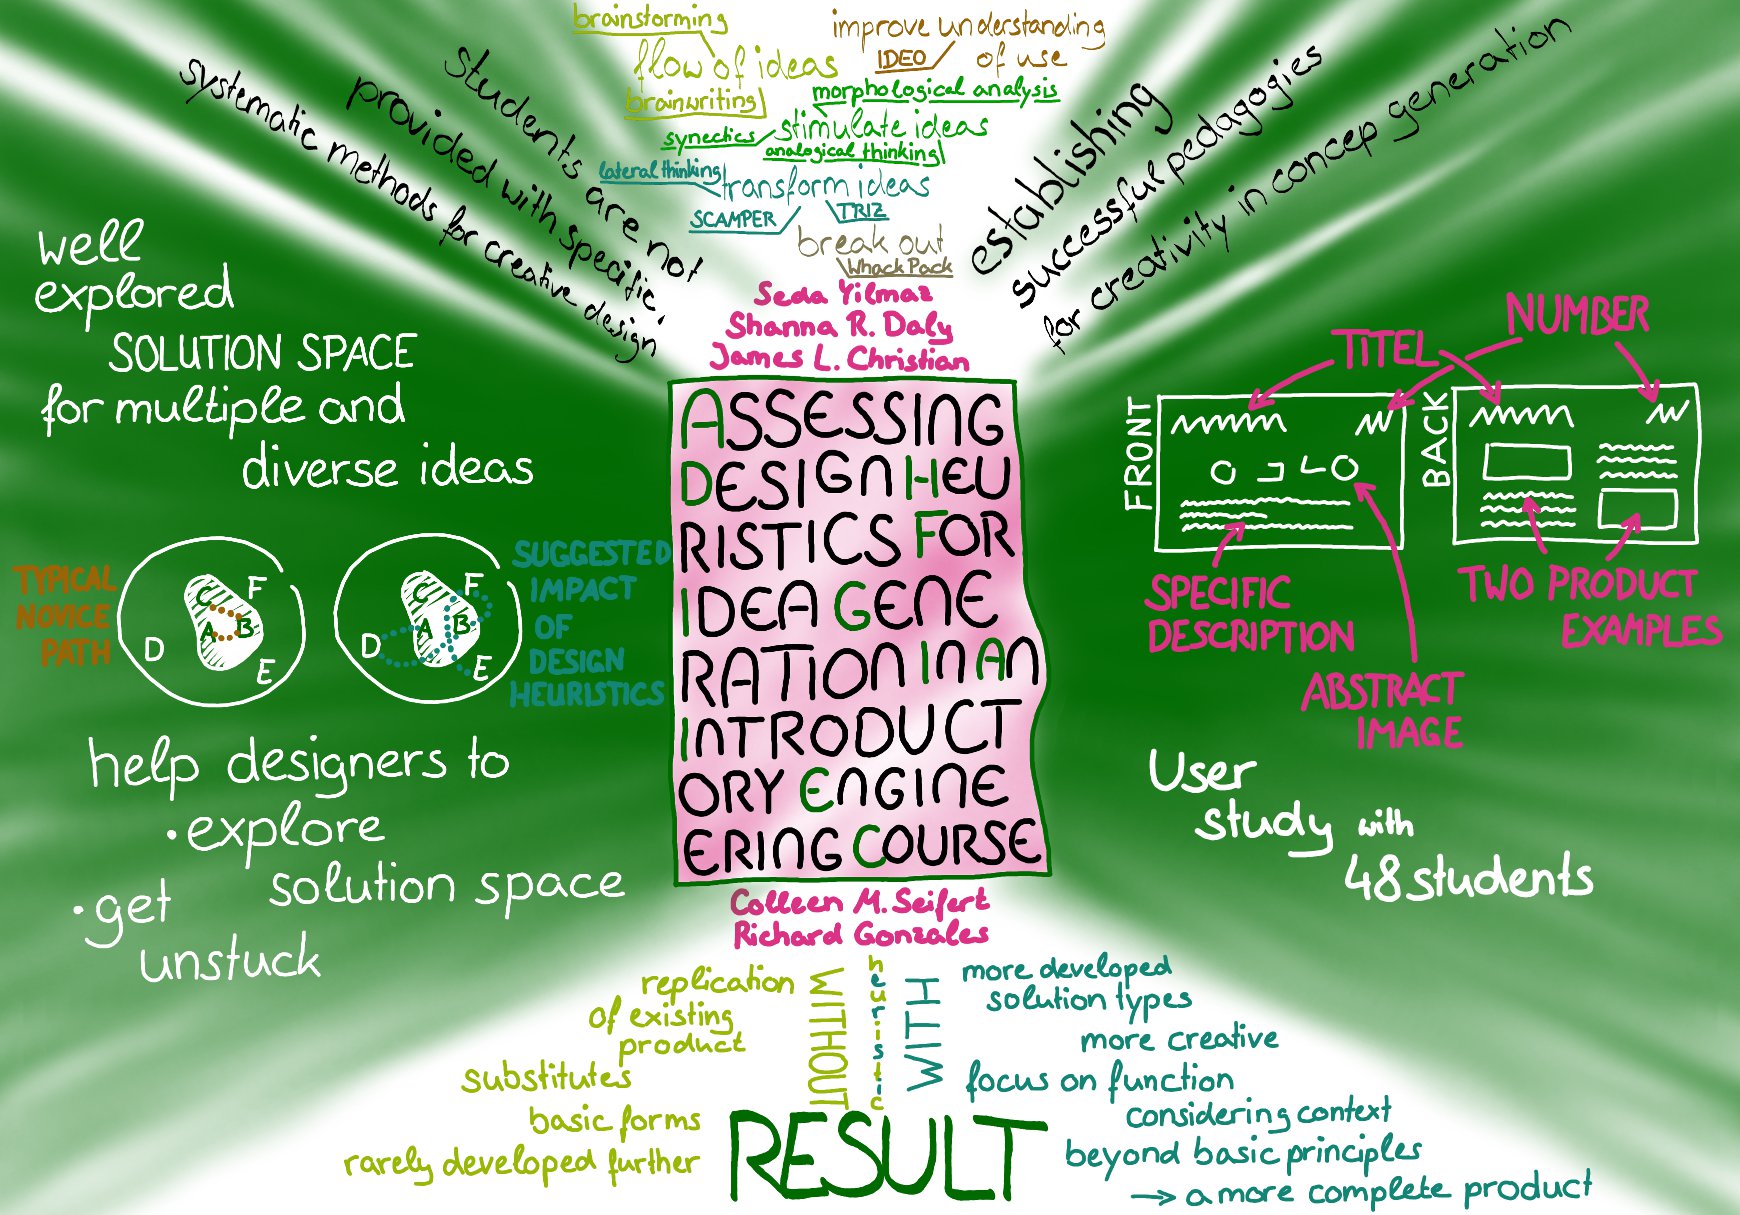 brainstorming
flow of ideas
brainwriting
improve understanding
IDEO
of use
morphological analysis
synectics
stimulate ideas
analogical thinking
lateral thinking
transform ideas
SCAMPER
TRIZ
break out
Whack Pack
students are not
provided with specific,
systematic methods for creative design
establishing
successful pedagogies
for creativity in concep generation
Seda Yilmaz
Shanna R. Daly
James L. Christian
ASSESSING
DESIGN HEU
RISTICS FOR
IDEA GENE
RATION IN AN
INTRODUCT
ORY ENGINE
ERING COURSE
Colleen M. Seifert
Richard Gonzales
well
explored
SOLUTION SPACE
for multiple and
diverse ideas
TYPICAL
NOVICE
PATH
C
F
A
B
D
E
C
F
A
B
D
E
SUGGESTED
IMPACT
OF
DESIGN
HEURISTICS
help designers to
• explore
solution space
• get
unstuck
TITEL
NUMBER
FRONT
BACK
SPECIFIC
DESCRIPTION
ABSTRACT
IMAGE
TWO PRODUCT
EXAMPLES
User
study with
48 students
WITHOUT
heuristic
WITH
replication
of existing
product
substitutes
basic forms
rarely developed further
RESULT
more developed
solution types
more creative
focus on function
considering context
beyond basic principles
→ a more complete product